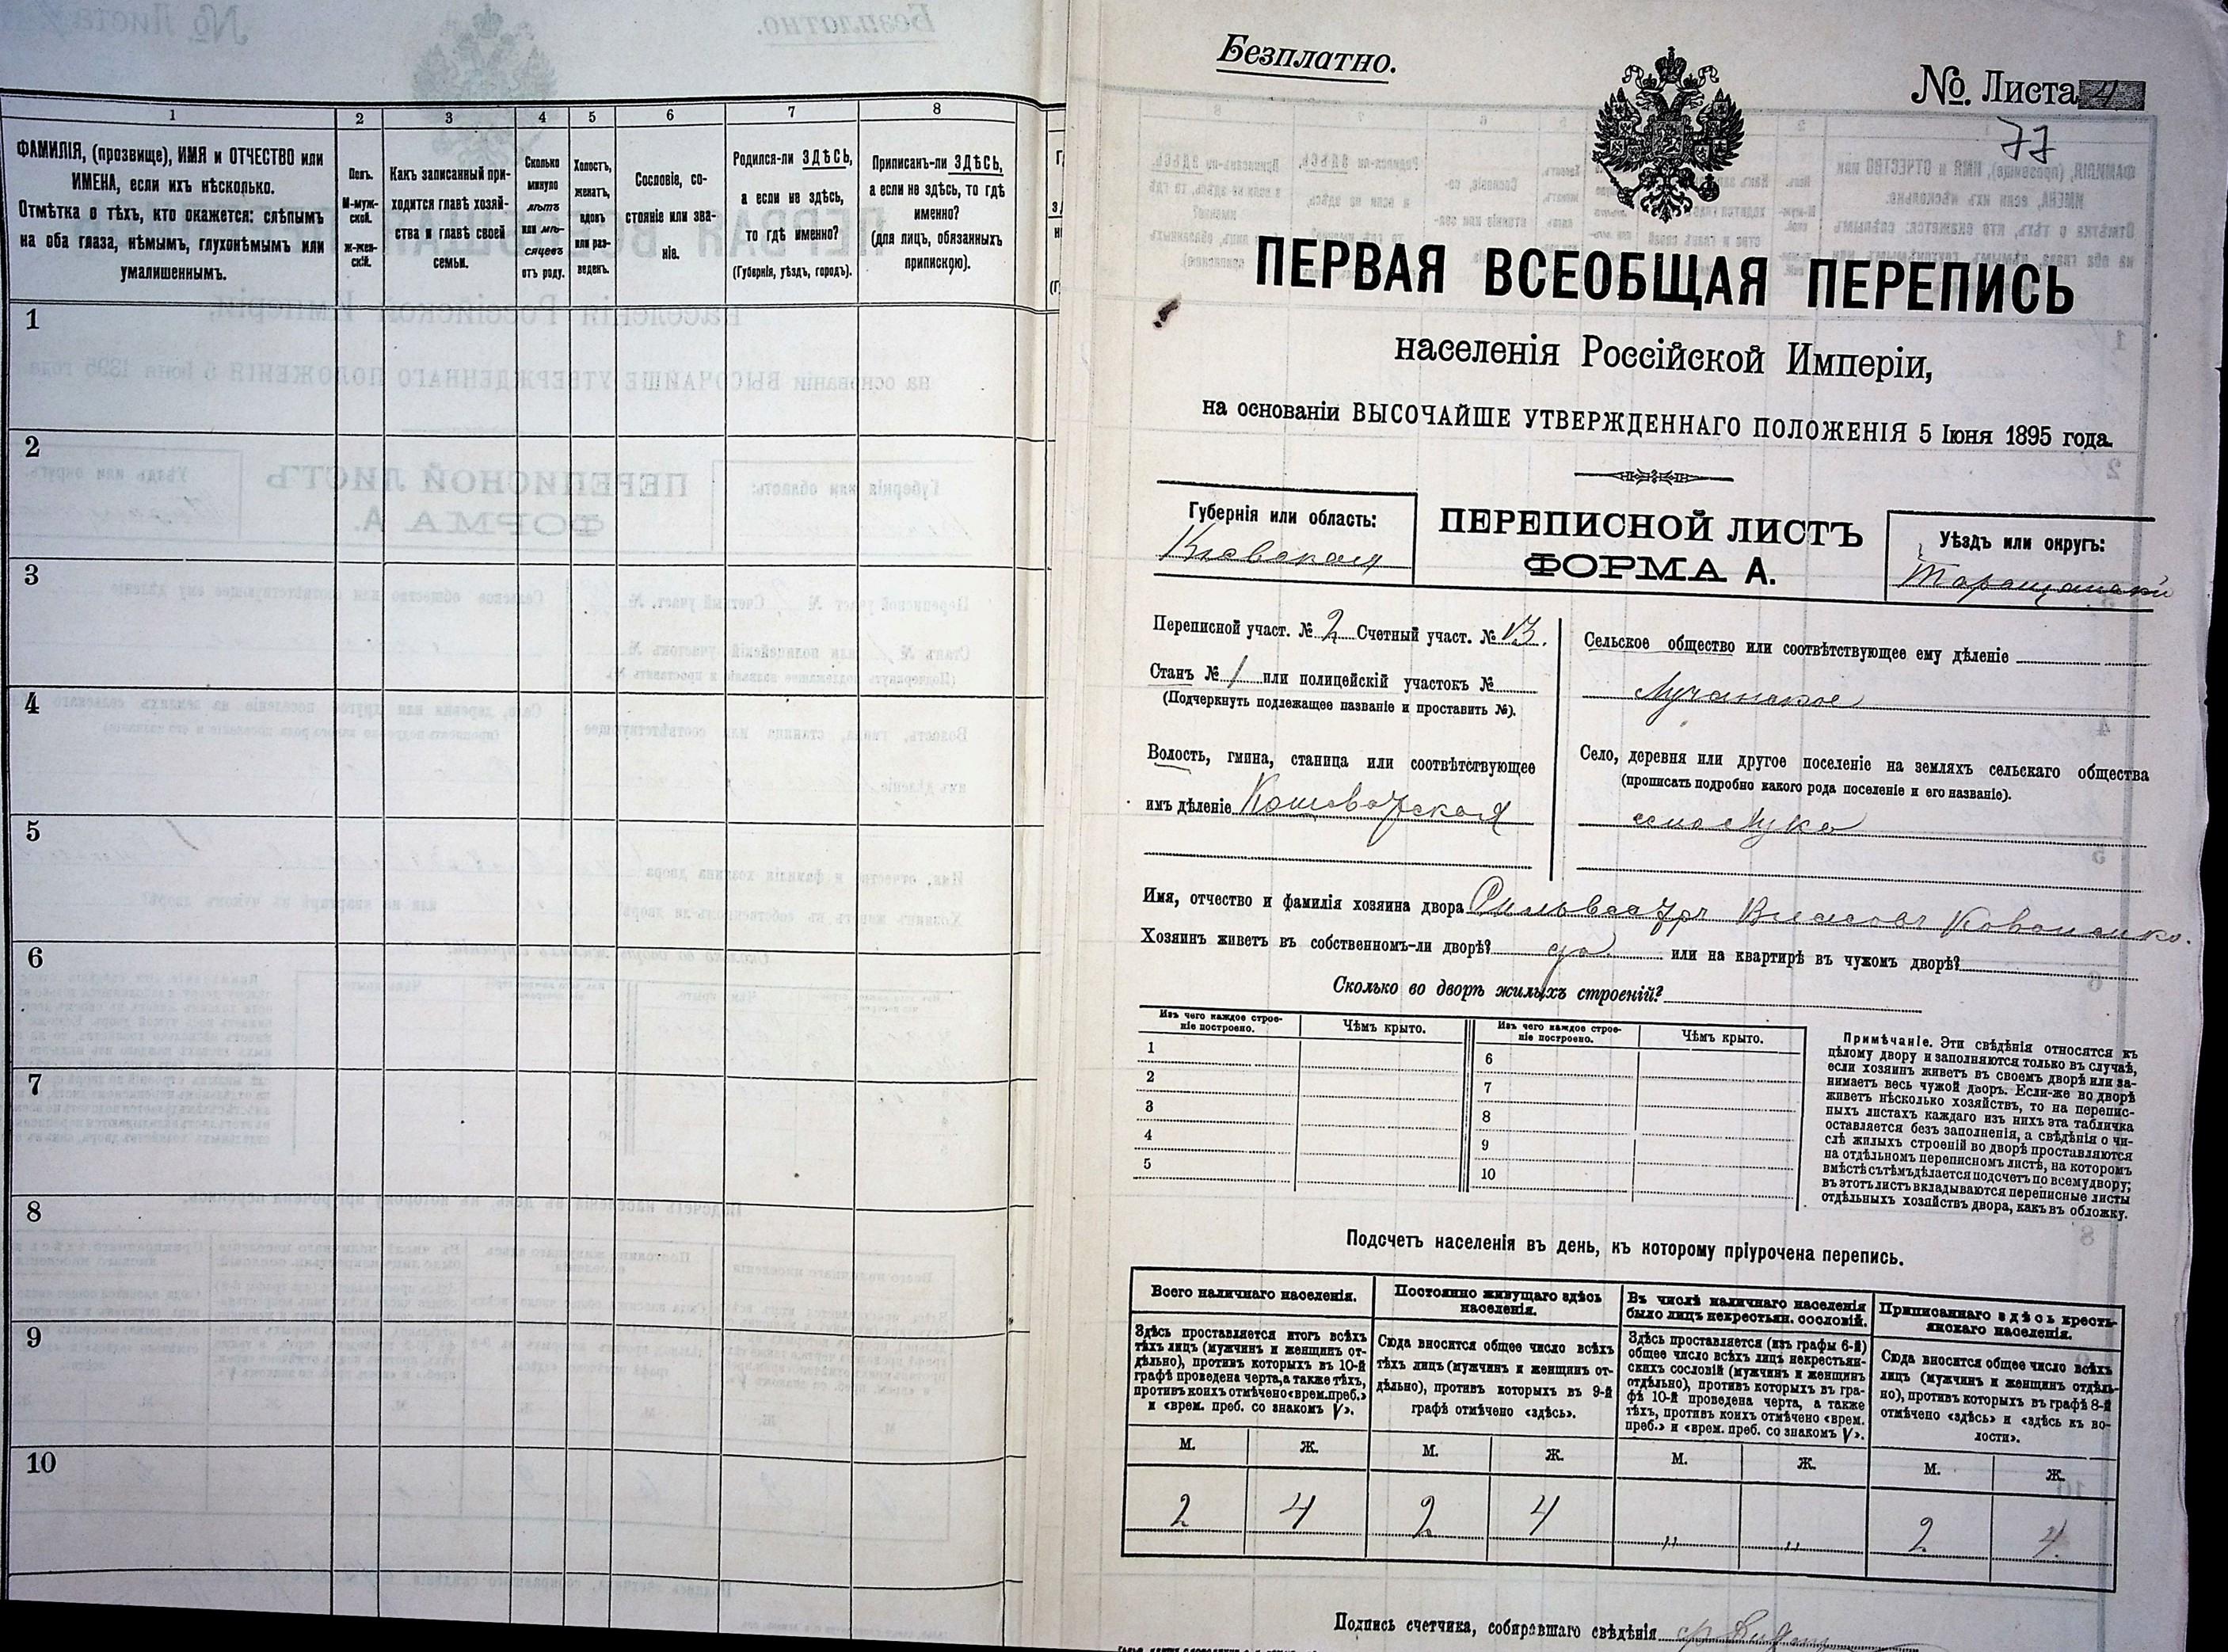 1 2 3 4 5 6 7 8
ФАМИЛІЯ, (прозвище), ИМЯ и ОТЧЕСТВО или
ИМЕНА, если ихъ нѣсколько.
Отмѣтка о тѣхъ, кто окажется: слѣпымъ
на оба глаза, нѣмымъ, глухонѣмымъ или
умалишеннымъ.
Полъ.
М-муж-
ской.
ж-жен-
скій.
Какъ записанный при-
ходится главѣ хозяй-
ства и главѣ своей
семьи.
Сколько
минуло
лѣтъ
или мѣ-
сяцевъ
отъ роду.
Холостъ,
женатъ,
вдовъ
или раз-
веденъ.
Сословіе, со-
стояніе или зва-
ніе.
Родился-ли ЗДѢСЬ,
а если не здѣсь,
то гдѣ именно?
(Губернія, уѣздъ, городъ).
Приписанъ-ли ЗДѢСЬ,
а если не здѣсь, то гдѣ
именно?
(для лицъ, обязанныхъ
припискою).
1
2
3
4
5
6
7
8
9
10
Безплатно.
№. Листа 4
77
ПЕРВАЯ ВСЕОБЩАЯ ПЕРЕПИСЬ
населенія Россійской Имперіи,
на основаніи ВЫСОЧАЙШЕ УТВЕРЖДЕННАГО ПОЛОЖЕНІЯ 5 Іюня 1895 года.
Губернія или область:
Кіевская
ПЕРЕПИСНОЙ ЛИСТЪ
ФОРМА А.
Уѣздъ или округъ:
Таращанскій
Переписной участ. № 2 Счетный участ. № 13.
Станъ № 1 или полицейскій участокъ №
(Подчеркнуть подлежащее названіе и проставить №).
Волость, гмина, станица или соотвѣтствующее
имъ дѣленіе Кошеватская
Сельское общество или соотвѣтствующее ему дѣленіе
Лучанское
Село, деревня или другое поселеніе на земляхъ сельскаго общества
(прописать подробно какого рода поселеніе и его названіе).
село Лука
Имя, отчество и фамилія хозяина двора Сильвестръ Власовъ Коваленко.
Хозяинъ живетъ въ собственномъ-ли дворѣ? да или на квартирѣ въ чужомъ дворѣ?
Сколько во дворѣ жилыхъ строеній?
Изъ чего каждое строе-
ніе построено.
Чѣмъ крыто.
Изъ чего каждое строе-
ніе построено.
Чѣмъ крыто.
1 6
2 7
3 8
4 9
5 10
Примѣчаніе. Эти свѣдѣнія относятся къ
цѣлому двору и заполняются только въ случаѣ,
если хозяинъ живетъ въ своемъ дворѣ или за-
нимаетъ весь чужой дворъ. Если-же во дворѣ
живетъ нѣсколько хозяйствъ, то на перепис-
ныхъ листахъ каждаго изъ нихъ эта табличка
оставляется безъ заполненія, а свѣдѣнія о чи-
слѣ жилыхъ строеній во дворѣ проставляются
на отдѣльномъ переписномъ листѣ, на которомъ
вмѣстѣ съ тѣмъ дѣлается подсчетъ по всему двору;
въ этотъ листъ вкладываются переписные листы
отдѣльныхъ хозяйствъ двора, какъ въ обложку.
Подсчетъ населенія въ день, къ которому пріурочена перепись.
Всего наличнаго населенія.
Здѣсь проставляется итогъ всѣхъ
тѣхъ лицъ (мужчинъ и женщинъ от-
дѣльно), противъ которыхъ въ 10-й
графѣ проведена черта, а также тѣхъ,
противъ коихъ отмѣчено «врем. преб.»
и «врем. преб. со знакомъ V».
Постоянно живущаго здѣсь
населенія.
Сюда вносится общее число всѣхъ
тѣхъ лицъ (мужчинъ и женщинъ от-
дѣльно), противъ которыхъ въ 9-й
графѣ отмѣчено «здѣсь».
Въ числѣ наличнаго населенія
было лицъ некрестьян. сословій.
Здѣсь проставляется (изъ графы 6-й)
общее число всѣхъ лицъ некрестьян-
скихъ сословій (мужчинъ и женщинъ
отдѣльно), противъ которыхъ въ гра-
фѣ 10-й проведена черта, а также
тѣхъ, противъ коихъ отмѣчено «врем.
преб.» и «врем. преб. со знакомъ V».
Приписаннаго здѣсь кресть-
янскаго населенія.
Сюда вносится общее число всѣхъ
лицъ (мужчинъ и женщинъ отдѣль-
но), противъ которыхъ въ графѣ 8-й
отмѣчено «здѣсь» и «здѣсь къ во-
лости».
М. Ж. М. Ж. М. Ж. М. Ж.
2 4 2 4 „ „ 2 4.
Подпись счетчика, собиравшаго свѣдѣнія